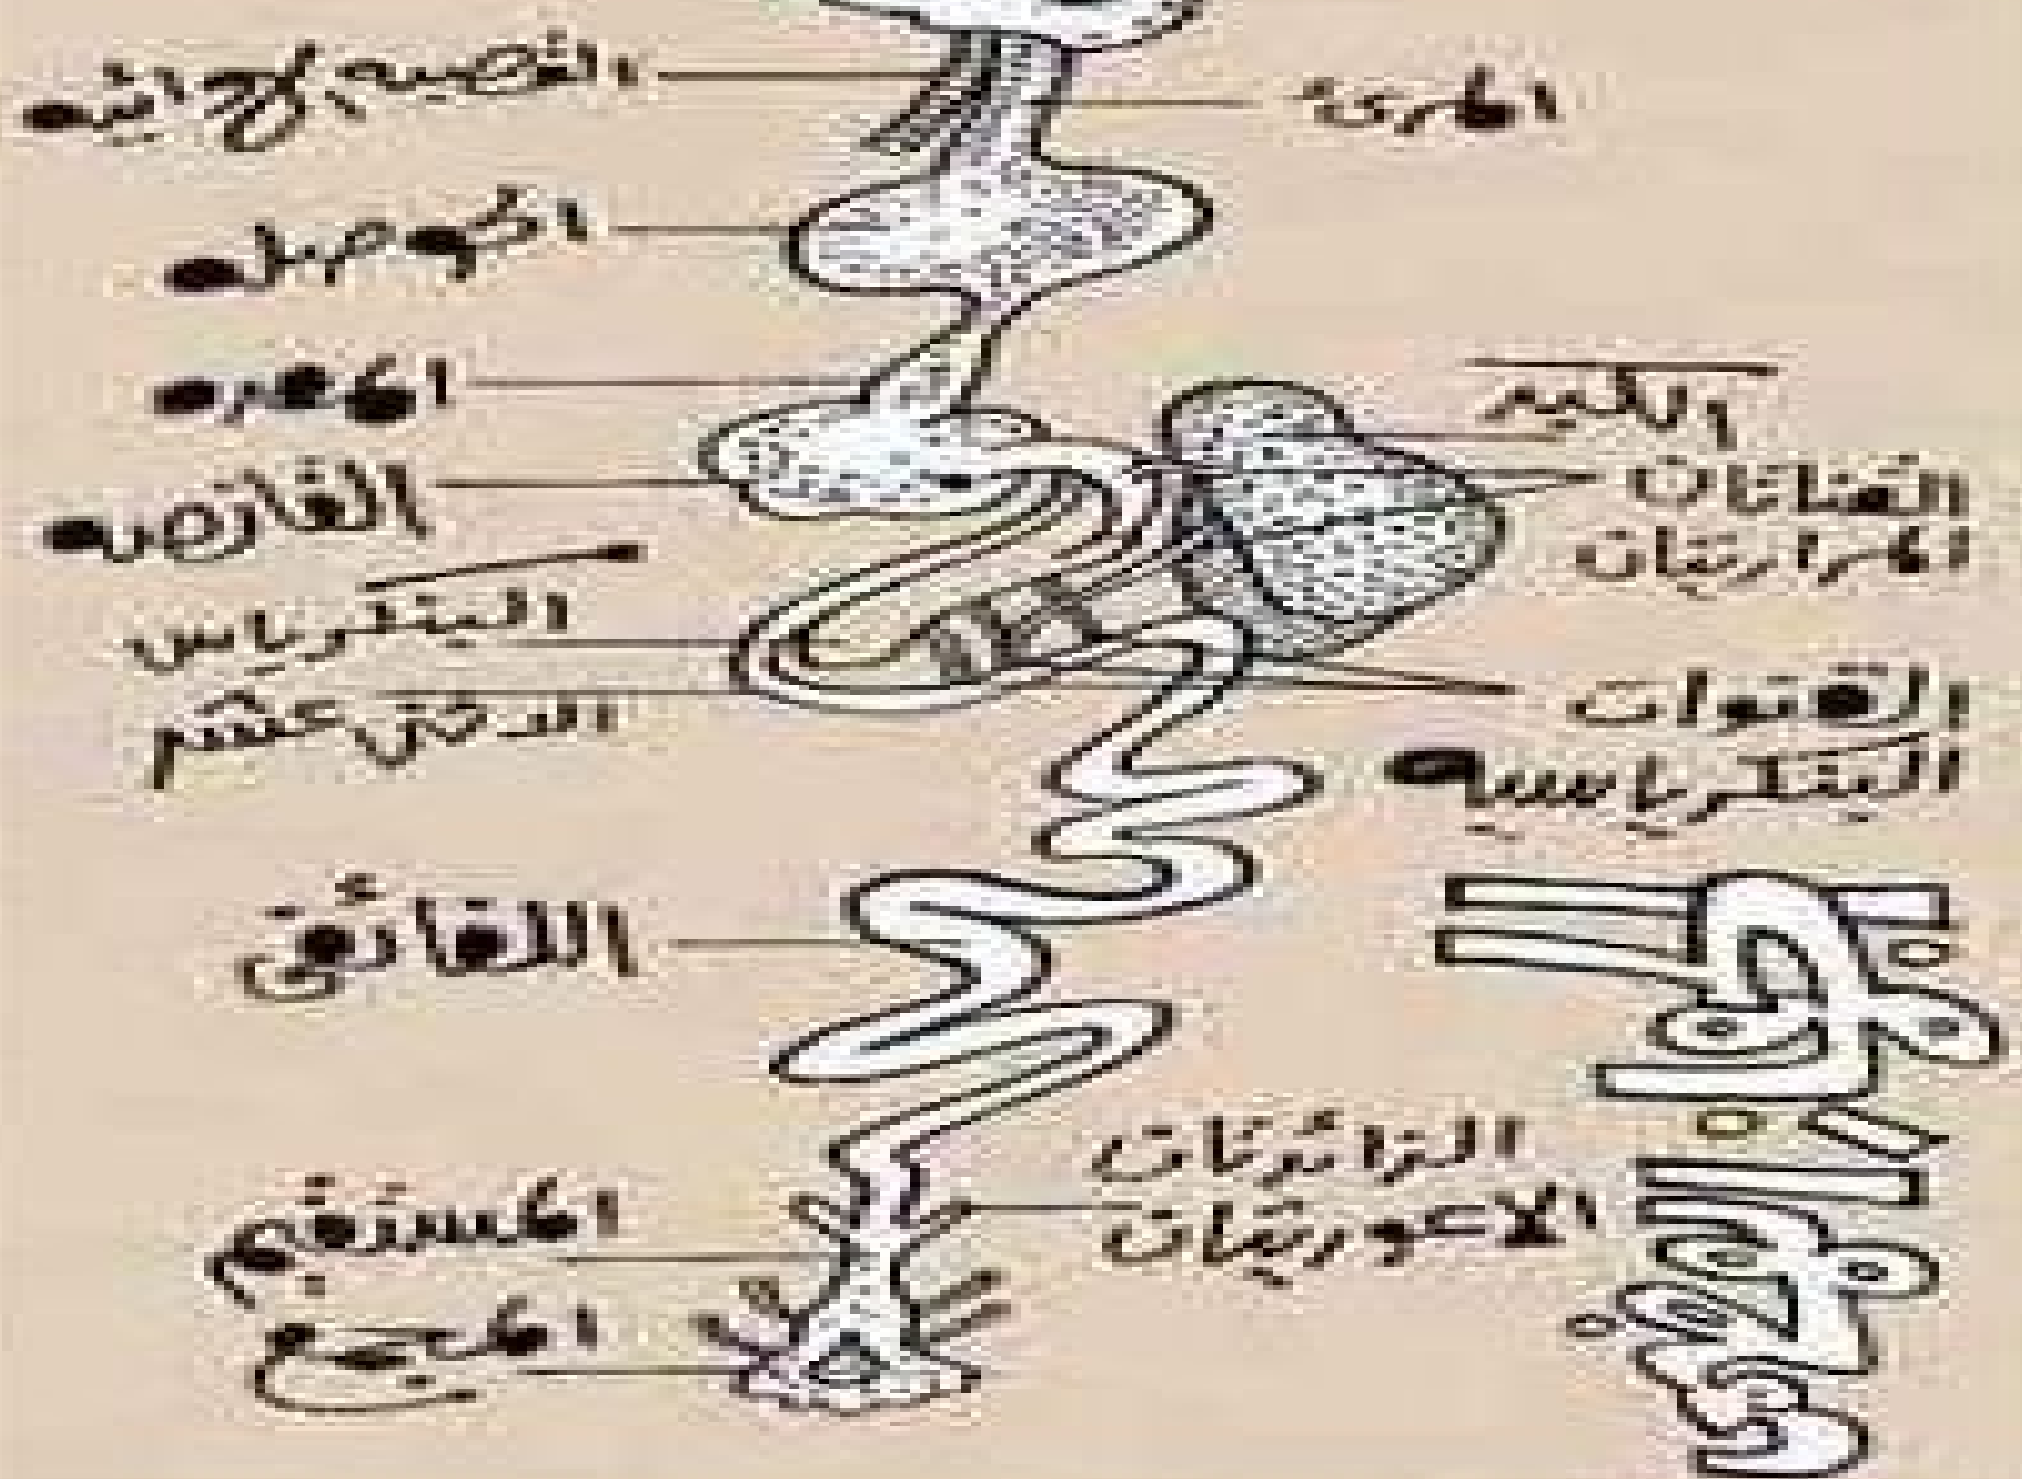 القصبه الهوائيه
المرىء
الحوصله
المعده
الكبد
القانصه
القناتان
المراريتان
البنكرياس
الاثنى عشر
القنوات
البنكرياسيه
اللفائفى
الزائدتان
الاعوريتان
المستقيم
المجمع
الجهاز
الهضمى